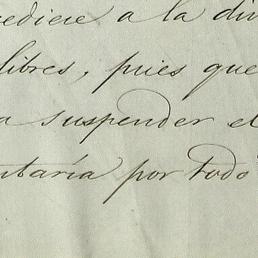 cediese a la div
libres, pues que
a suspender el
ntaría por todo